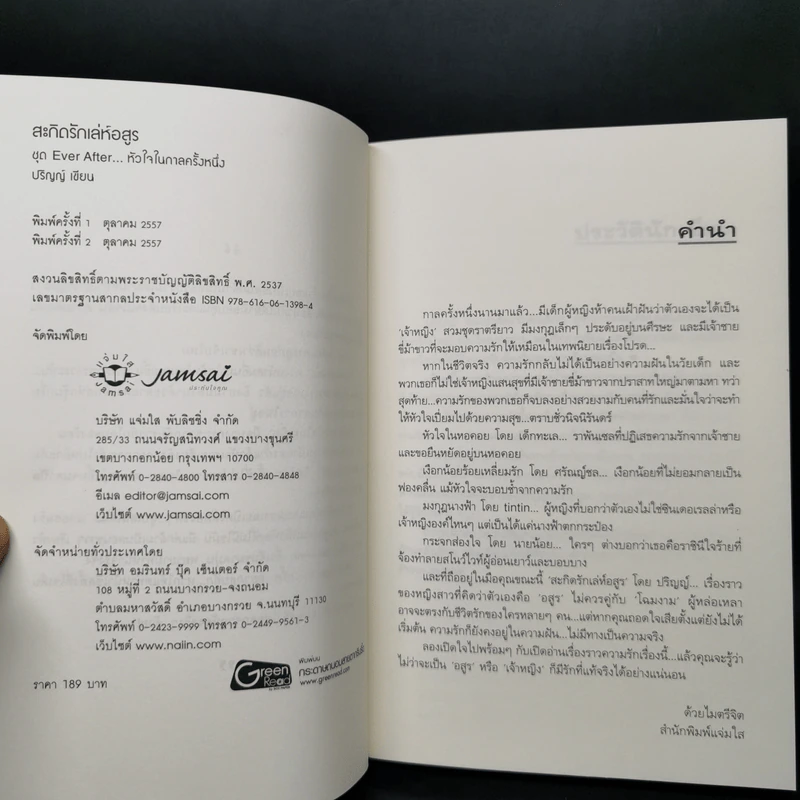 สะกิดรักเล่ห์อสูร
ชุด Ever After... หัวใจในกาลครั้งหนึ่ง
ปริญญ์ เขียน
พิมพ์ครั้งที่ 1 ตุลาคม 2557
พิมพ์ครั้งที่ 2 ตุลาคม 2557
สงวนลิขสิทธิ์ตามพระราชบัญญัติลิขสิทธิ์ พ.ศ. 2537
เลขมาตรฐานสากลประจำหนังสือ ISBN 978-616-06-1398-4
จัดพิมพ์โดย
แจ่มใส
Jamsai
Jamsai
บริษัท แจ่มใส พับลิชชิ่ง จำกัด
285/33 ถนนจรัญสนิทวงศ์ แขวงบางขุนศรี
เขตบางกอกน้อย กรุงเทพฯ 10700
โทรศัพท์ 0-2840-4800 โทรสาร 0-2840-4848
อีเมล editor@jamsai.com
เว็บไซต์ www.jamsai.com
จัดจำหน่ายทั่วประเทศโดย
บริษัท อมรินทร์ บุ๊ค เซ็นเตอร์ จำกัด
108 หมู่ที่ 2 ถนนบางกรวย-จงถนอม
ตำบลมหาสวัสดิ์ อำเภอบางกรวย จ.นนทบุรี 11130
โทรศัพท์ 0-2423-9999 โทรสาร 0-2449-9561-3
เว็บไซต์ www.naiin.com
Green Read
พิมพ์บน
กระดาษถนอมสายตากรีนรีด
www.greenread.com
ราคา 189 บาท
คำนำ
กาลครั้งหนึ่งนานมาแล้ว...มีเด็กผู้หญิงห้าคนเฝ้าฝันว่าตัวเองจะได้เป็น
'เจ้าหญิง' สวมชุดราตรียาว มีมงกุฎเล็กๆ ประดับอยู่บนศีรษะ และมีเจ้าชาย
ขี่ม้าขาวที่จะมอบความรักให้เหมือนในเทพนิยายเรื่องโปรด...
หากในชีวิตจริง ความรักกลับไม่ได้เป็นอย่างความฝันในวัยเด็ก และ
พวกเธอก็ไม่ใช่เจ้าหญิงแสนสุขที่มีเจ้าชายขี่ม้าขาวจากปราสาทใหญ่มาตามหา ทว่า
สุดท้าย...ความรักของพวกเธอก็จบลงอย่างสวยงามกับคนที่รักและมั่นใจว่าจะทำ
ให้หัวใจเปี่ยมไปด้วยความสุข...ตราบชั่วนิจนิรันดร์
หัวใจในหอคอย โดย เด็กทะเล... ราพันเซลที่ปฏิเสธความรักจากเจ้าชาย
และขอยืนหยัดอยู่บนหอคอย
เงือกน้อยร้อยเหลี่ยมรัก โดย ศรัณญ์ชล... เงือกน้อยที่ไม่ยอมกลายเป็น
ฟองคลื่น แม้หัวใจจะบอบช้ำจากความรัก
มงกุฎนางฟ้า โดย tintin... ผู้หญิงที่บอกว่าตัวเองไม่ใช่ซินเดอเรลล่าหรือ
เจ้าหญิงองค์ไหนๆ แต่เป็นได้แค่นางฟ้าตกกระป๋อง
กระจกส่องใจ โดย นายน้อย... ใครๆ ต่างบอกว่าเธอคือราชินีใจร้ายที่
จ้องทำลายสโนว์ไวท์ผู้อ่อนเยาว์และบอบบาง
และที่ถืออยู่ในมือคุณขณะนี้ 'สะกิดรักเล่ห์อสูร' โดย ปริญญ์... เรื่องราว
ของหญิงสาวที่คิดว่าตัวเองคือ 'อสูร' ไม่ควรคู่กับ 'โฉมงาม' ผู้หล่อเหลา
อาจจะตรงกับชีวิตรักของใครหลายๆ คน...แต่หากคุณถอดใจเสียตั้งแต่ยังไม่ได้
เริ่มต้น ความรักก็ยังคงอยู่ในความฝัน...ไม่มีทางเป็นความจริง
ลองเปิดใจไปพร้อมๆ กับเปิดอ่านเรื่องราวความรักเรื่องนี้...แล้วคุณจะรู้ว่า
ไม่ว่าจะเป็น 'อสูร' หรือ 'เจ้าหญิง' ก็มีรักที่แท้จริงได้อย่างแน่นอน
ด้วยไมตรีจิต
สำนักพิมพ์แจ่มใส